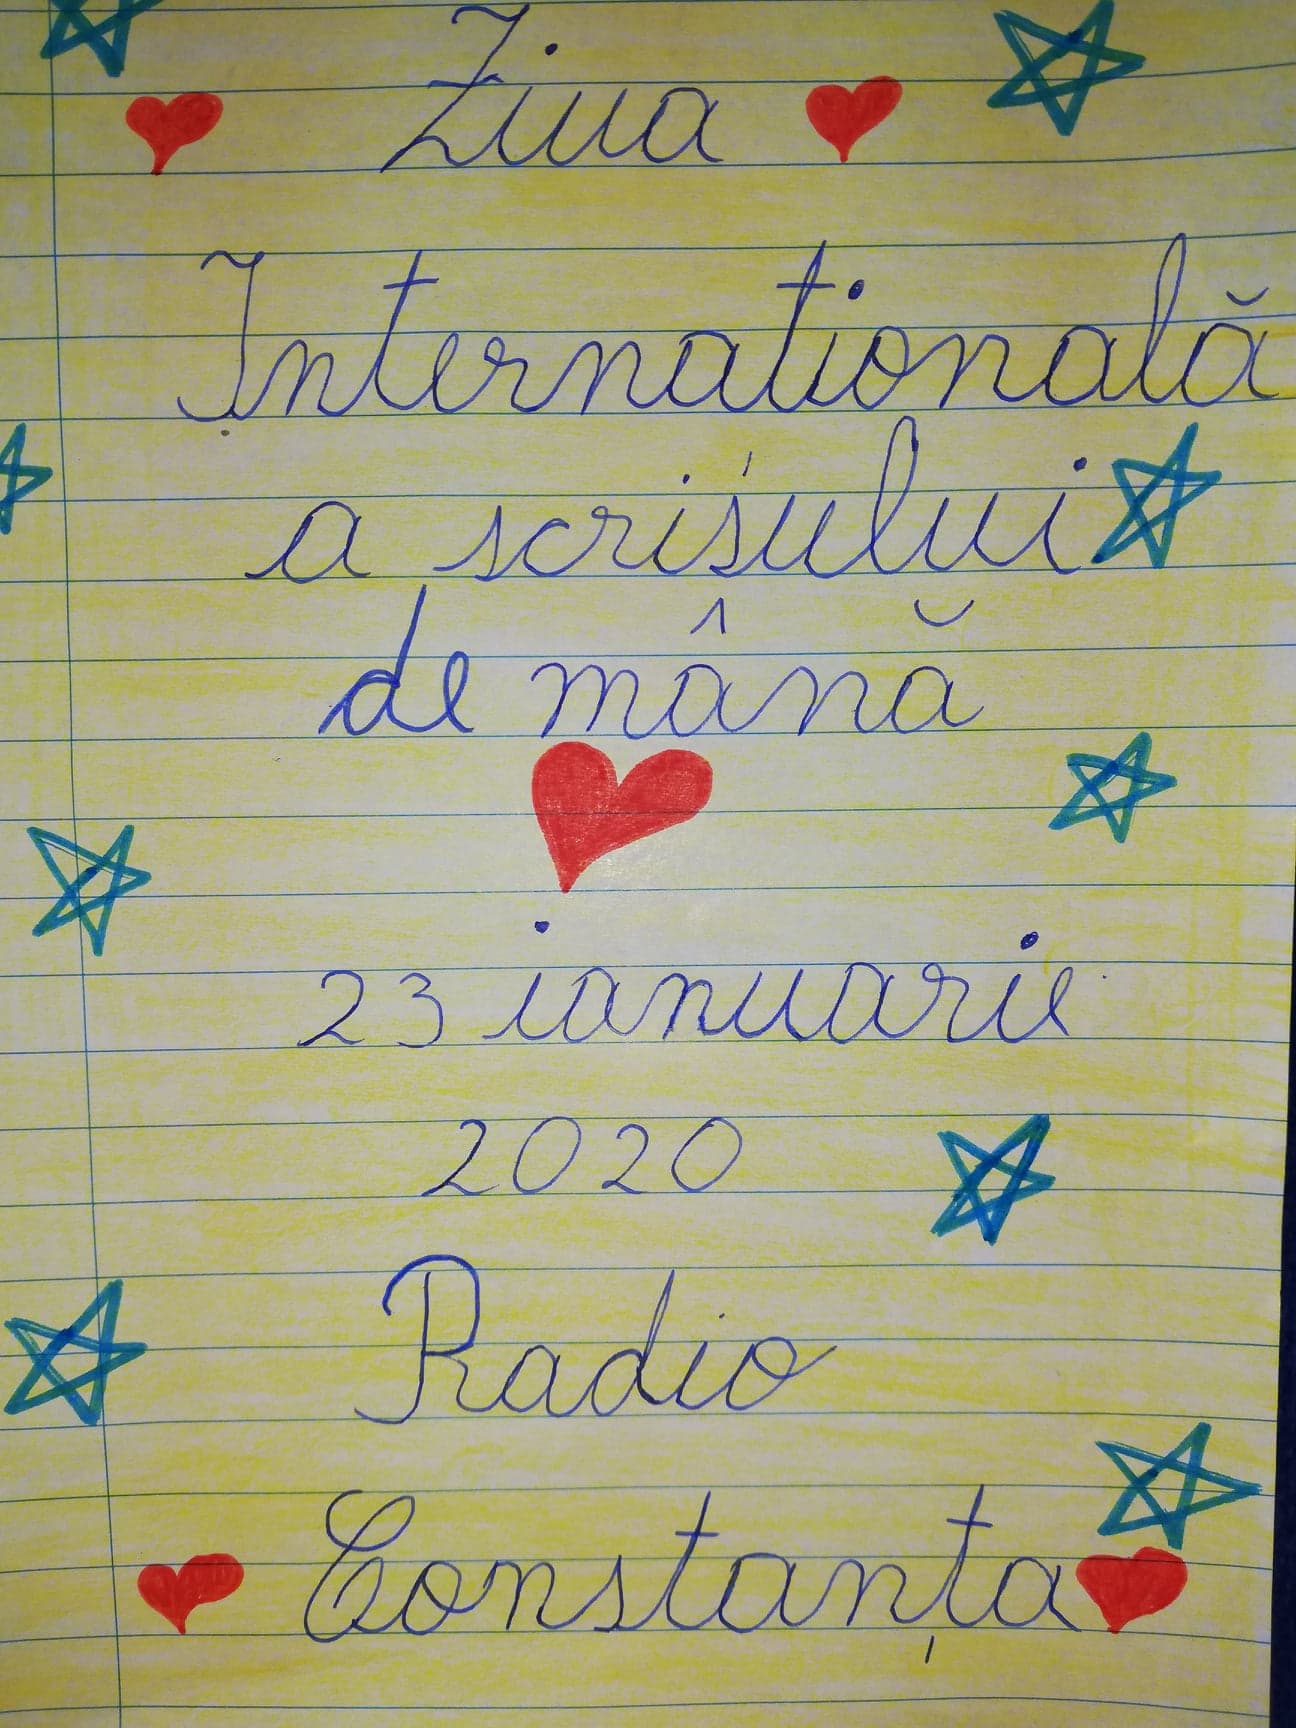 Ziua
Internatională
a scrisului
de mână
23 ianuarie
2020
Radio
Constanța